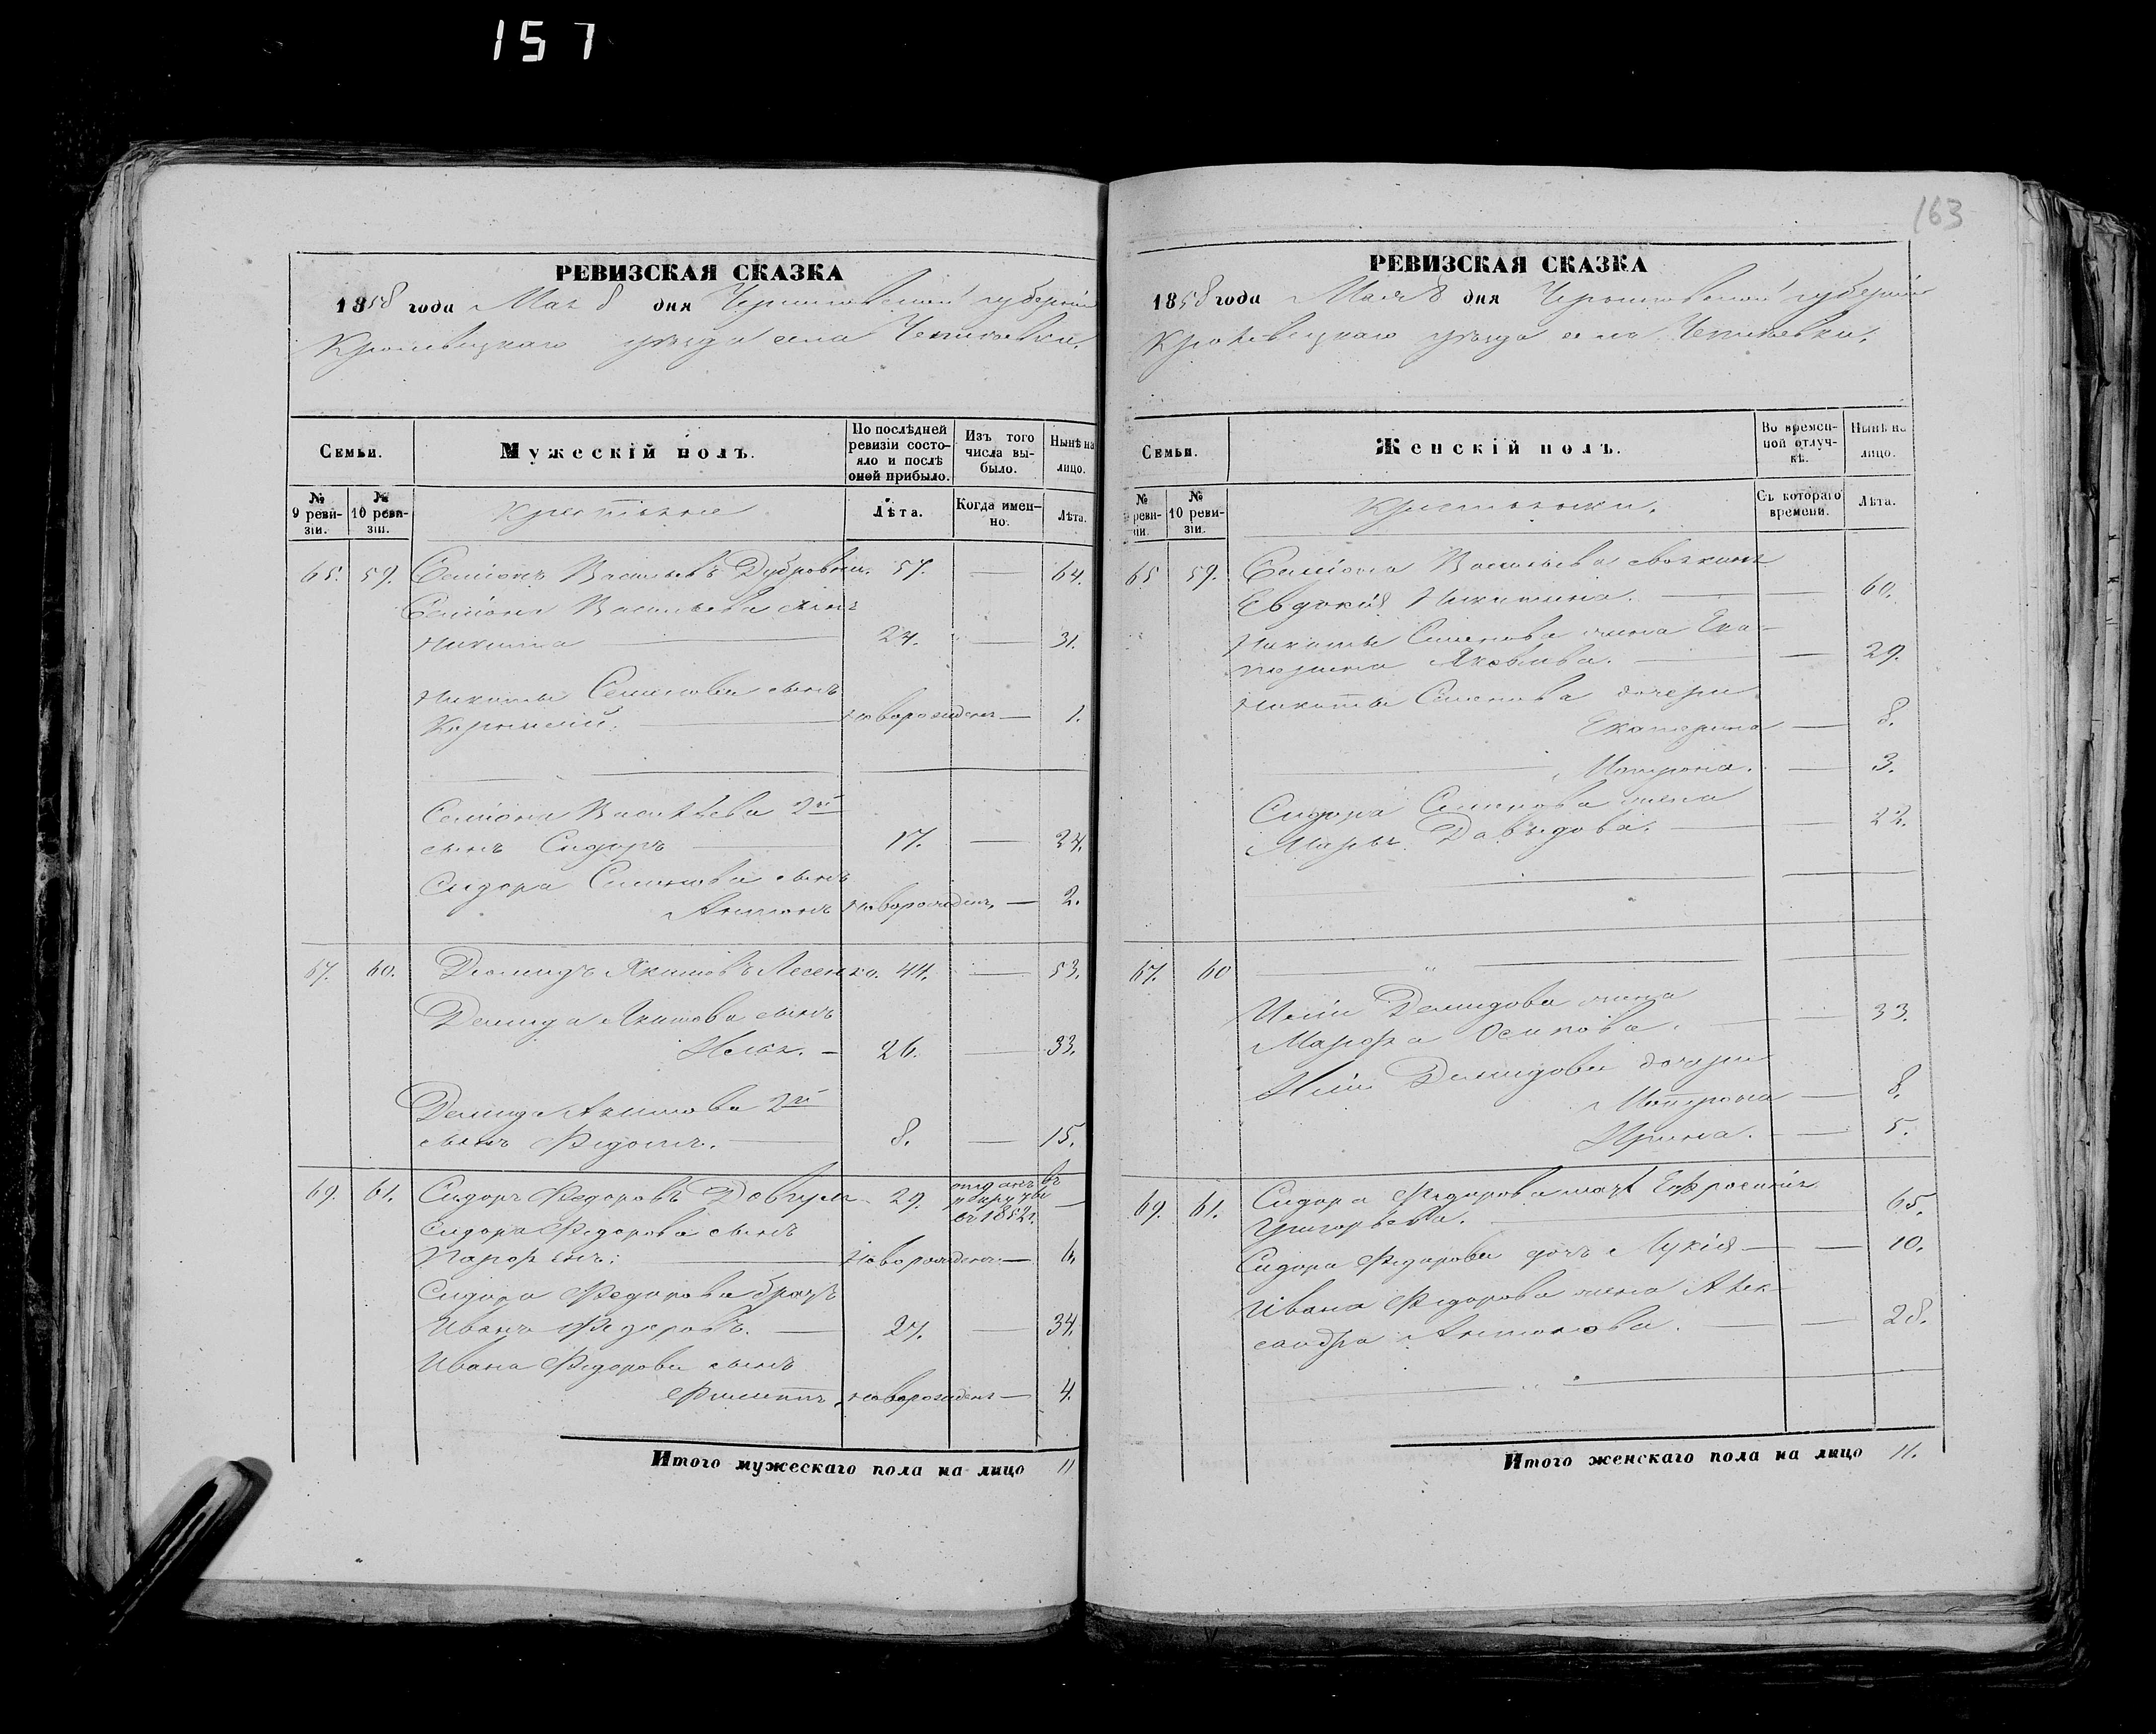 157
РЕВИЗСКАЯ СКАЗКА
1858 года Мая 8 дня Черниговской губерніи
Кролевецкаго уѣзда села Чепліевки.
Семьи.
Мужескій полъ.
По послѣдней ревизіи состояло и послѣ оной прибыло.
Изъ того числа выбыло.
Нынѣ на лицо.
№ 9 ревизіи.
№ 10 ревизіи.
Крестьяне
Лѣта.
Когда именно.
Лѣта.
65. 59. Семіонъ Васильевъ 57. — 64.
Семіона Васильева сынъ
Никита 24. — 31.
Никиты Семенова сынъ
Корнилій. новорожденъ — 1.
Семіона Васильева 2й
сынъ Сидоръ 17. — 24.
Сидора Семенова сынъ
Антонъ новорожден. — 2.
67. 60. Демидъ Якимовъ Лесенко. 44. — 53.
Демида Якимова сынъ
Илья. — 26. — 33.
Демида Акимова 2й
сынъ Федотъ. 8. — 15.
69. 61. Сидоръ Федоровъ 29. отданъ въ рекруты въ 1852г. —
Сидора Федорова сынъ
Парфенъ: новорожденъ — 6.
Сидора Федорова братъ
Иванъ Федоровъ. — 27. — 34.
Ивана Федорова сынъ
Филипъ новорожденъ — 4.
Итого мужескаго пола на лицо 11
163
РЕВИЗСКАЯ СКАЗКА
1858 года Мая 8 дня Черниговской губерніи
Кролевецкаго уѣзда села Чепліевки.
Семьи.
Женскій полъ.
Во временной отлучкѣ.
Нынѣ на лицо.
№ реви-
№ 10 ревизіи.
Крестьянки.
Съ котораго времени.
Лѣта.
65 59. Семіона Васильева
Евдокія Никитина. — 60.
Никиты Семенова жена Ека-
терина Яковлева. — 29.
Никиты Семенова дочери
Екатерина — 8.
Матрона. — 3.
Сидора Семенова жена
Марья Давыдова. — 22.
67. 60
Иліи Демидова жена
Марфа Осипова. — 33.
Иліи Демидова дочери
Матрона — 8.
Ирина. — 5.
69. 61. Сидора Федорова мать Ефросинія
Григорьева. 65.
Сидора Федорова дочь Лукія — 10.
Ивана Федорова жена Алек-
сандра Антонова. — 28.
Итого женскаго пола на лицо 11.